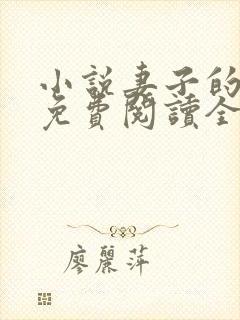 小説妻子的
免費閱讀全
廖麗萍